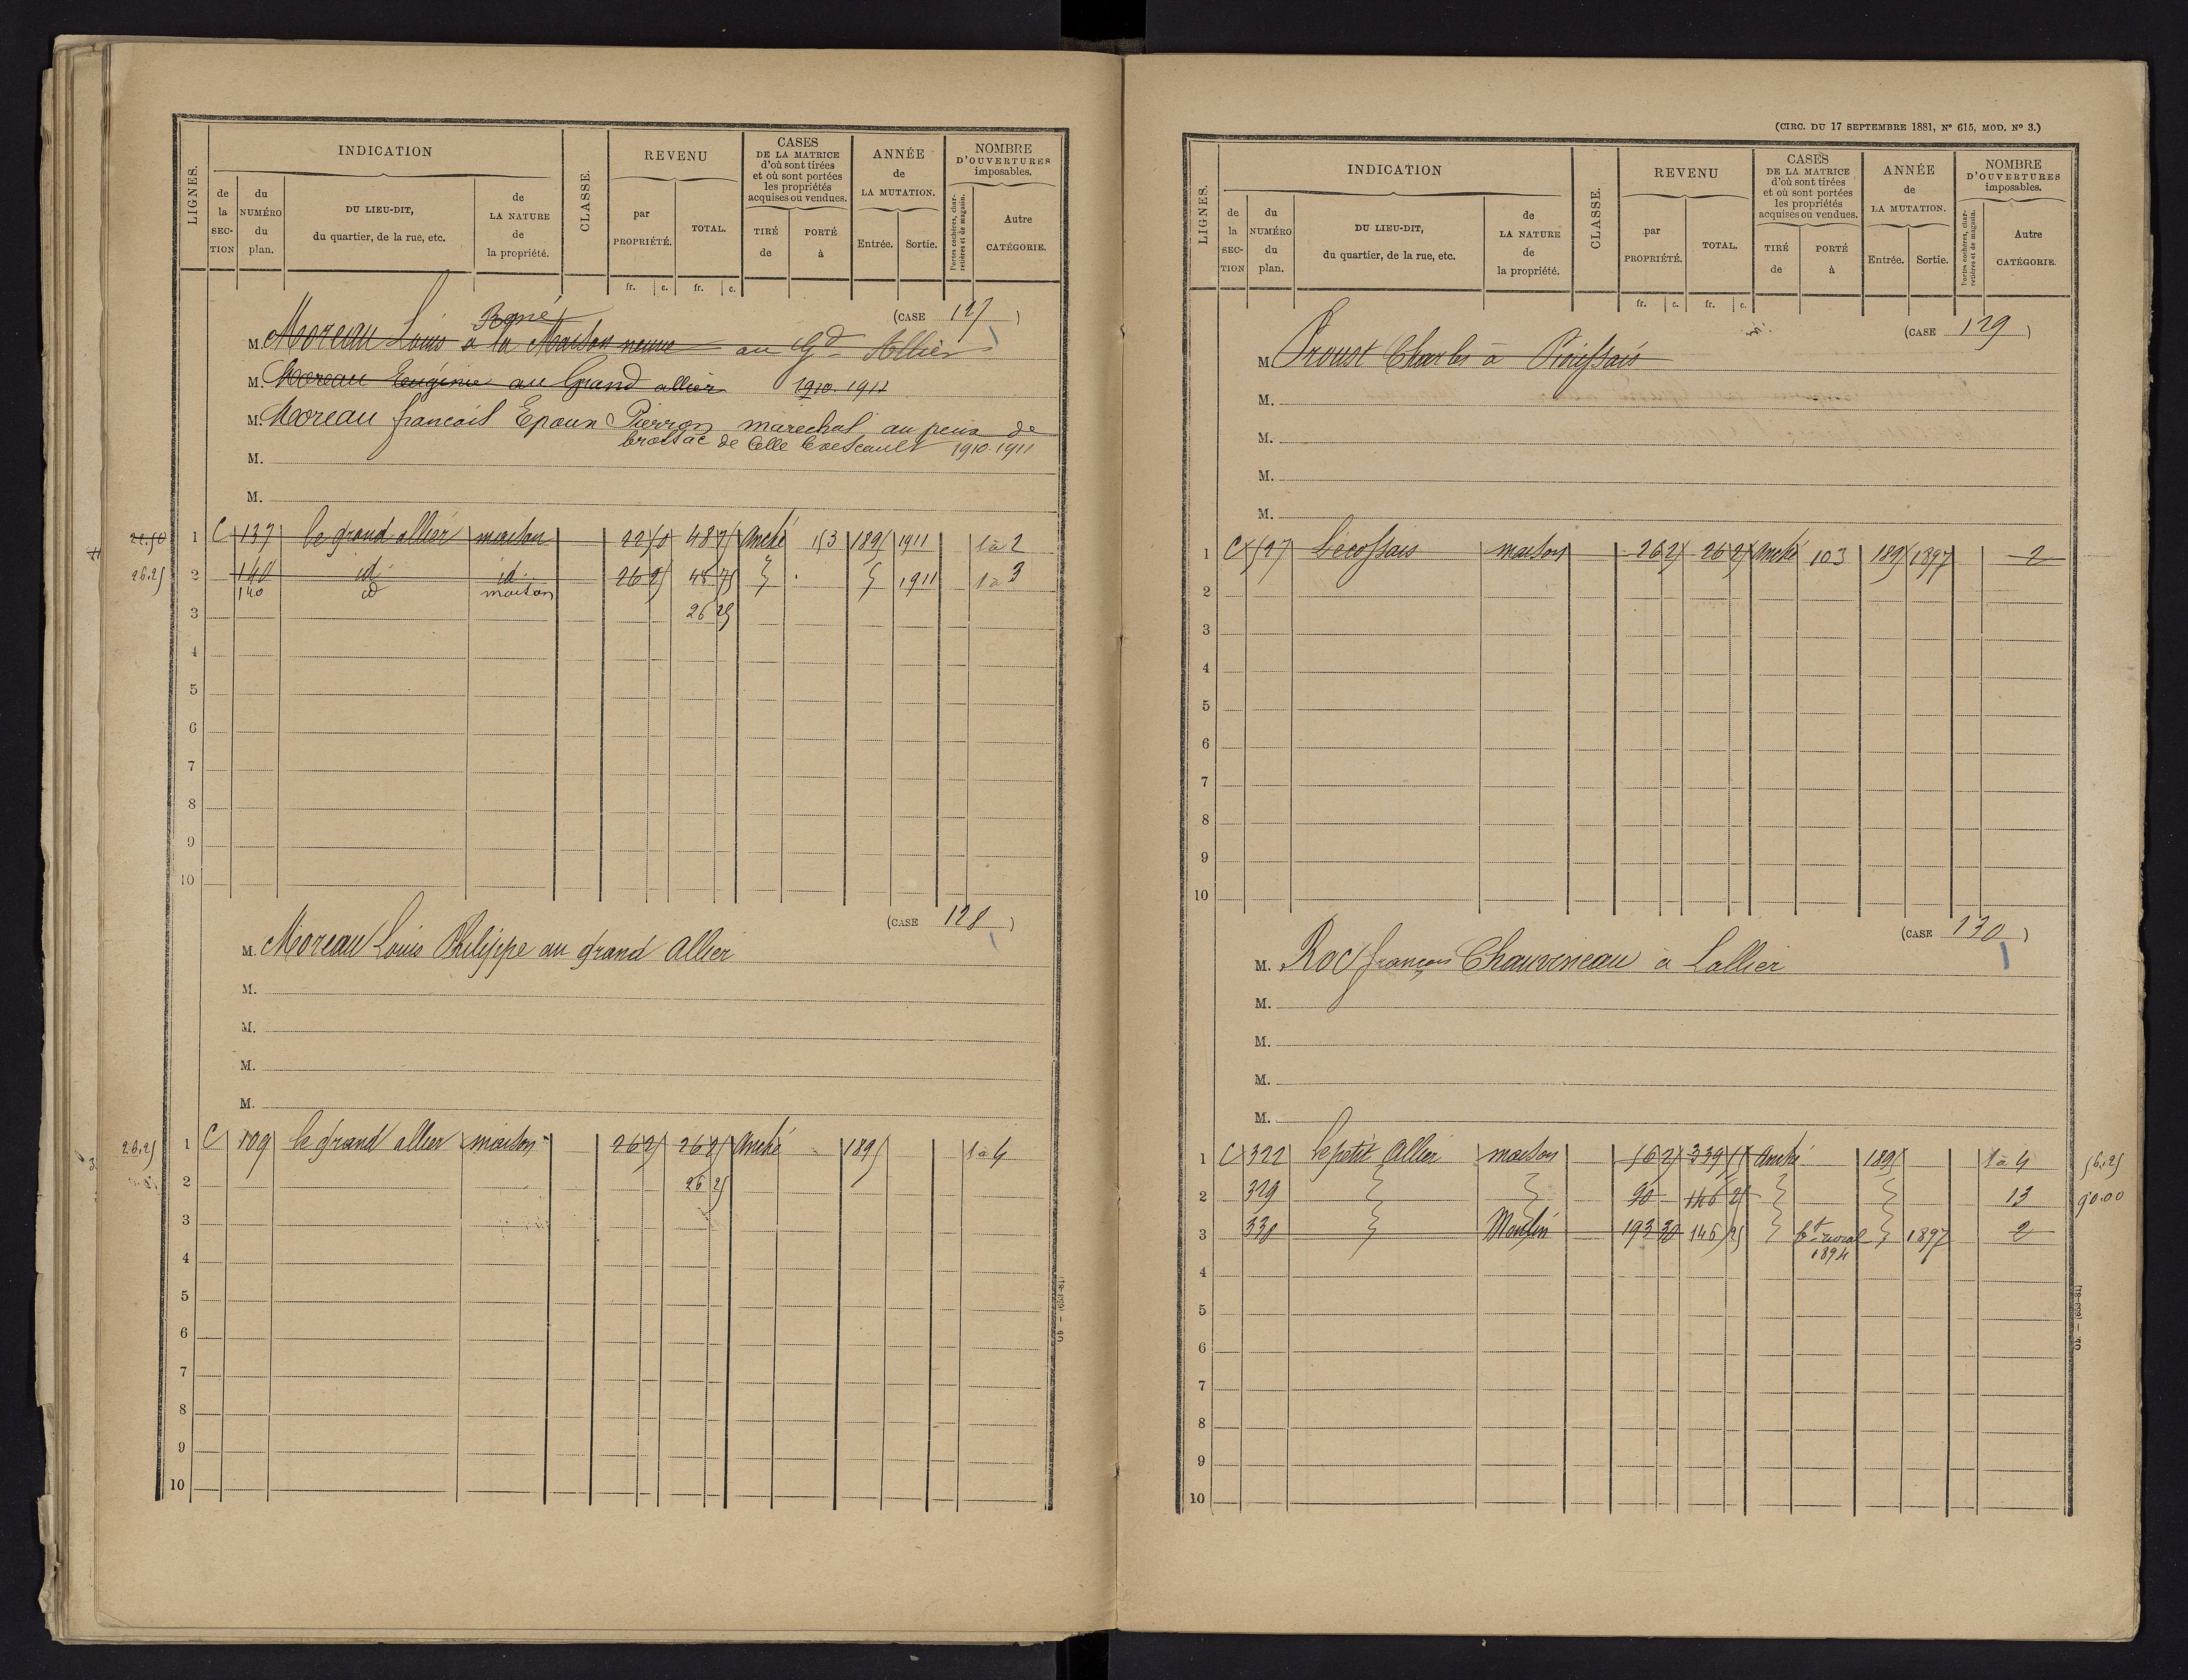 LIGNES.
INDICATION
de la SECTION
du NUMÉRO du plan.
DU LIEU-DIT, du quartier, de la rue, etc.
de LA NATURE de la propriété.
CLASSE.
REVENU
par PROPRIÉTÉ.
TOTAL.
CASES DE LA MATRICE d'où sont tirées et où sont portées les propriétés acquises ou vendues.
TIRÉ de
PORTÉ à
ANNÉE de LA MUTATION.
Entrée.
Sortie.
NOMBRE D'OUVERTURES imposables.
Portes cochères, charretières et de magasin.
Autre CATÉGORIE.
fr. c. fr. c.
(CASE 127)
René
M. Moreau Louis à la Maison neuve au Gd Allier
M. Moreau Eugénie au Grand allier 1910-1911
M. Moreau francois Epoux Pierron maréchal au peux de
brossac de Celle Lvescault 1910-1911
M.
M.
22.50 1 C 137 le grand allier maison 22 50 48 75 Anché 53 1895 1911 1 à 2
26.25 2 140 id. id. 26 25 48 75 1911 1 à 3
140 id maison
3 26 25
4
5
6
7
8
9
10
(CASE 128)
M. Moreau Louis Philippe au grand Allier
M.
M.
M.
M.
26.25 1 C 109 le grand allier maison 26 25 26 25 Anché 1895 1 à 4
2 26 25
3
4
5
6
7
8
9
10
40 — (653-81)
(CIRC. DU 17 SEPTEMBRE 1881, N° 615, MOD. N° 3.)
LIGNES.
INDICATION
de la SECTION
du NUMÉRO du plan.
DU LIEU-DIT, du quartier, de la rue, etc.
de LA NATURE de la propriété.
CLASSE.
REVENU
par PROPRIÉTÉ.
TOTAL.
CASES DE LA MATRICE d'où sont tirées et où sont portées les propriétés acquises ou vendues.
TIRÉ de
PORTÉ à
ANNÉE de LA MUTATION.
Entrée.
Sortie.
NOMBRE D'OUVERTURES imposables.
Portes cochères, charretières et de magasin.
Autre CATÉGORIE.
fr. c. fr. c.
(CASE 129)
M. Proust Charles à
M.
M.
M.
M.
1 C 527 Lécossais maison 26 25 26 25 Anché 103 1895 1897 2
2
3
4
5
6
7
8
9
10
(CASE 130)
M. Roc françois Chauveneau à Lallier
M.
M.
M.
M.
1 C 322 le petit Allier maison 56 25 339 55 Anché 1895 1 à 4 56.25
2 329 90 146 25 13 90.00
3 330 Moulin 193 30 146 25 rural 1897 2
1894
4
5
6
7
8
9
10
40. — (653-81)